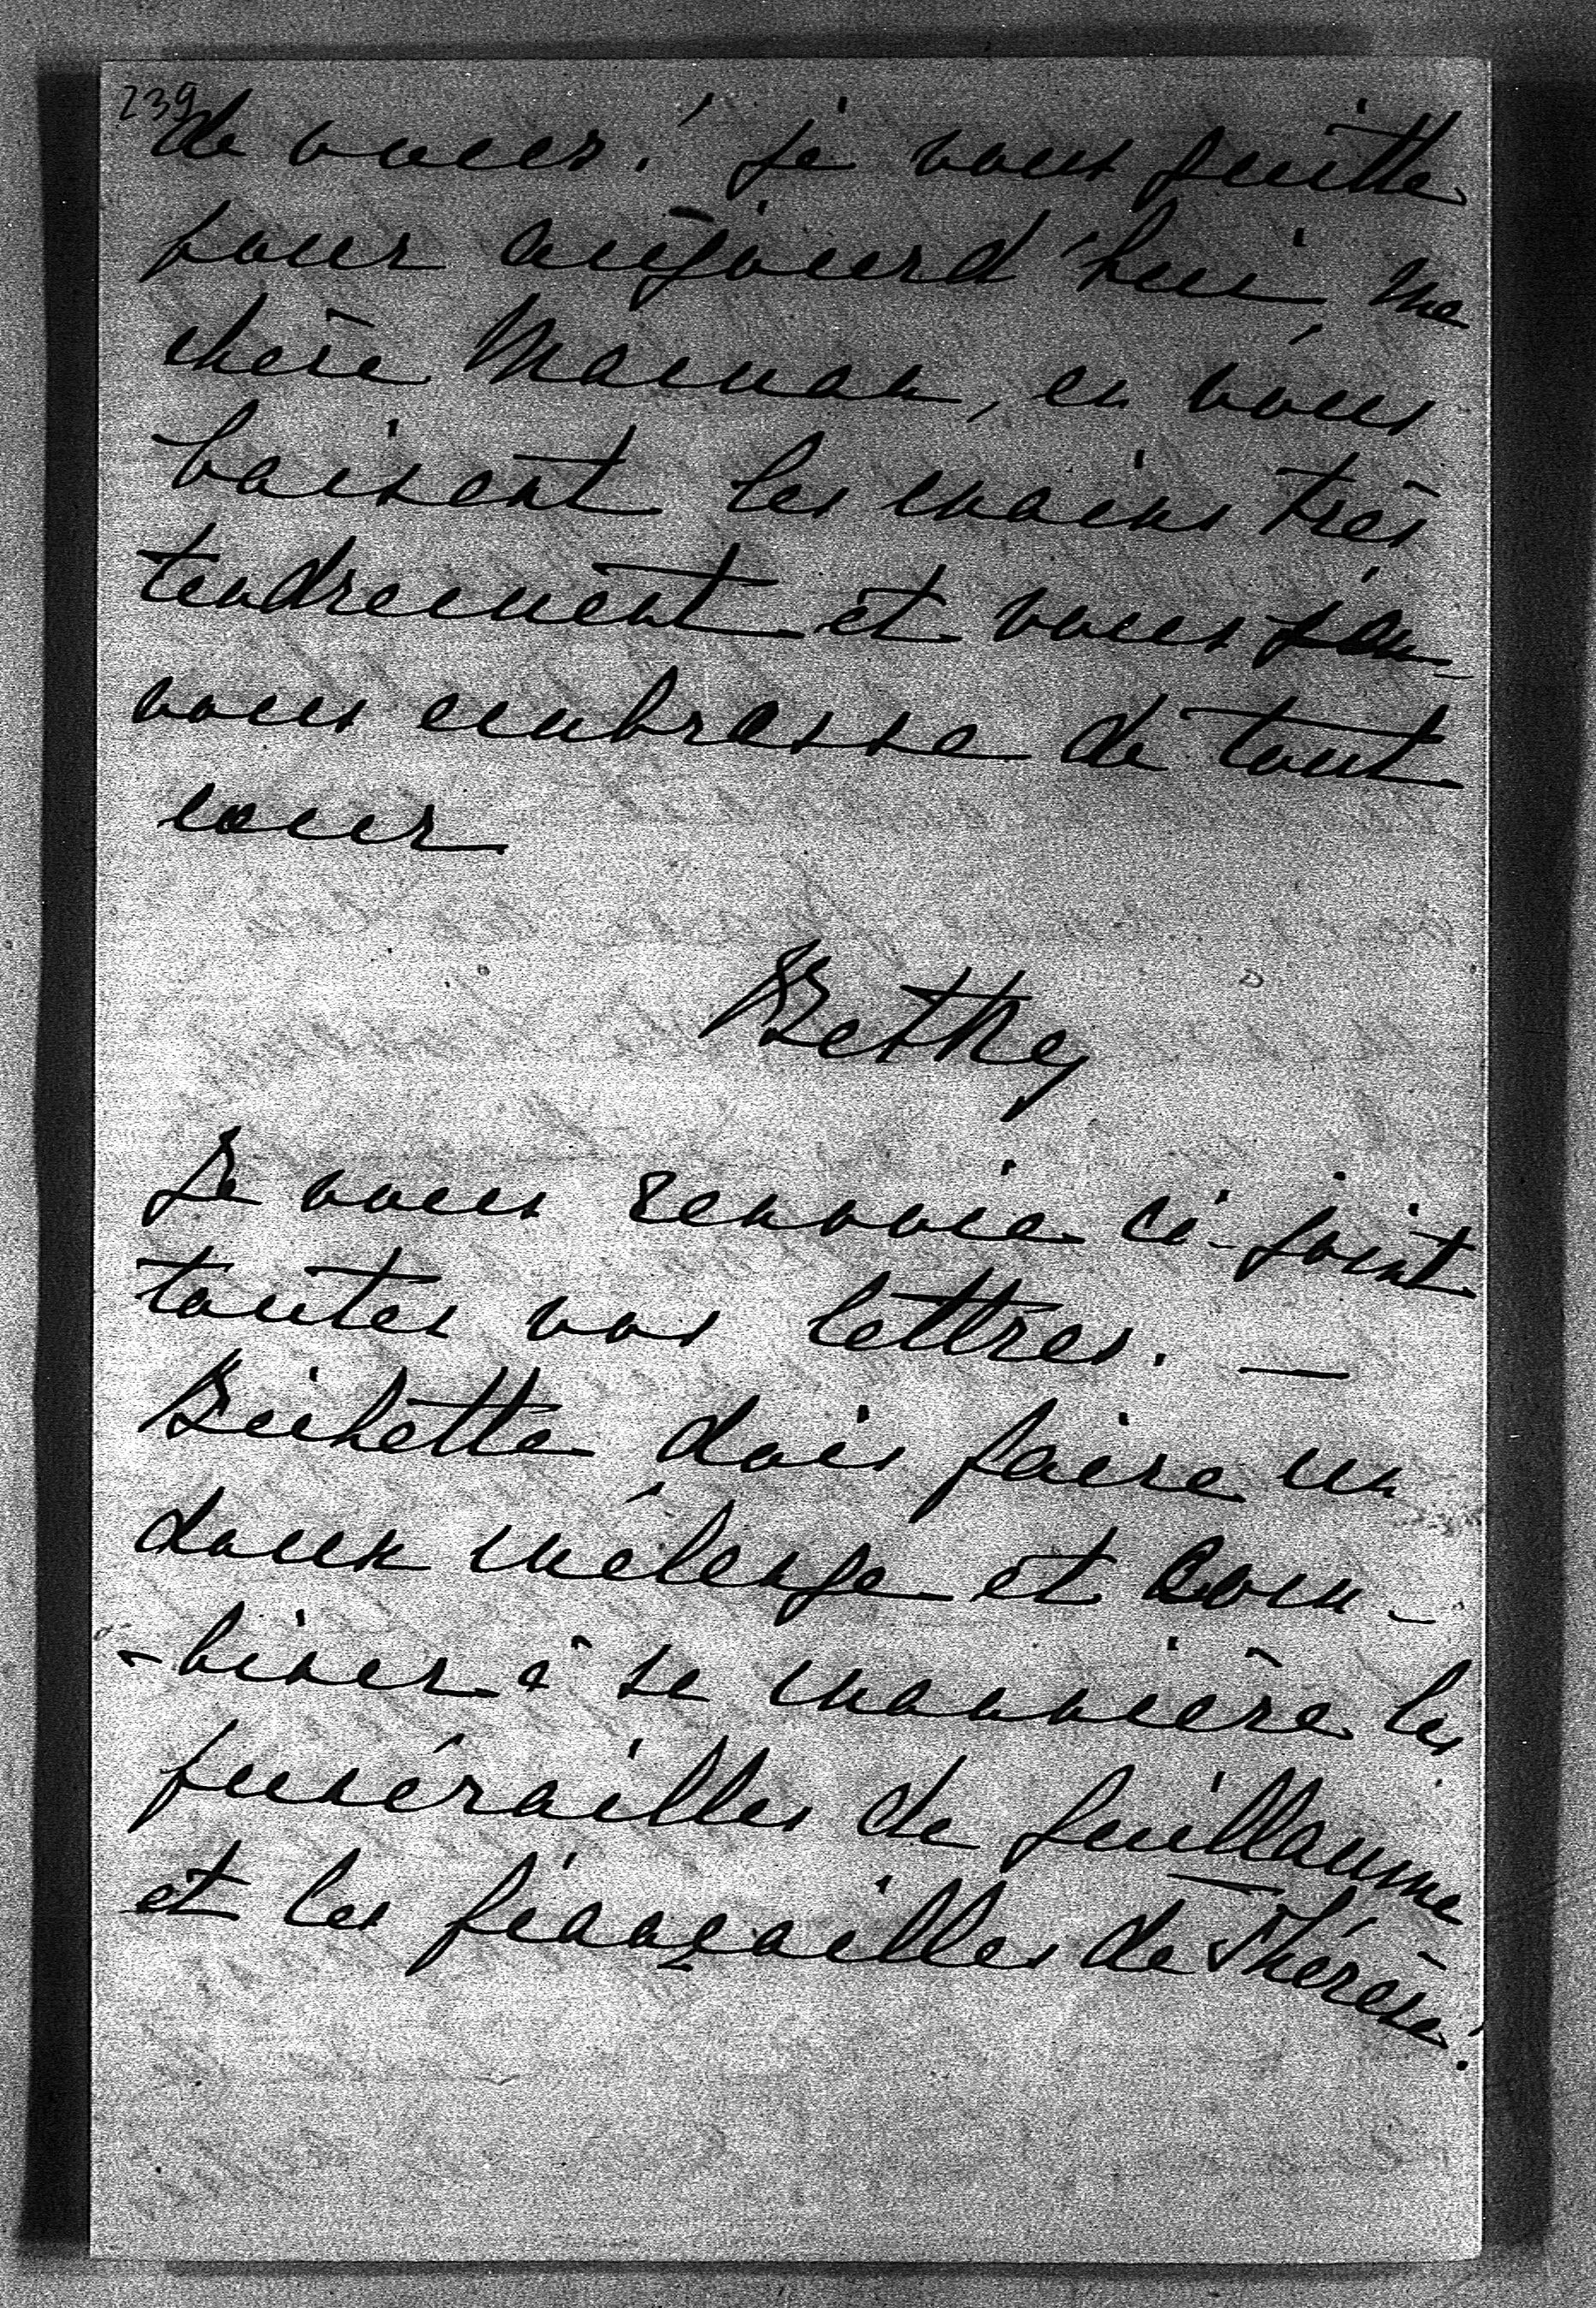 239
de vous! je vous quitte
pour aujourd'hui, ma
chère Maman, en vous
baisant les mains très
tendrement et vous
vous embrasse de tout
coeur
Bethy
Je vous renvoie ci-joint
toutes vos lettres. —
Bichette dois faire un
doux mélange et com-
-biner à sa mannière les
funérailles de Guillaume
et les fiançailles de Thérèse!